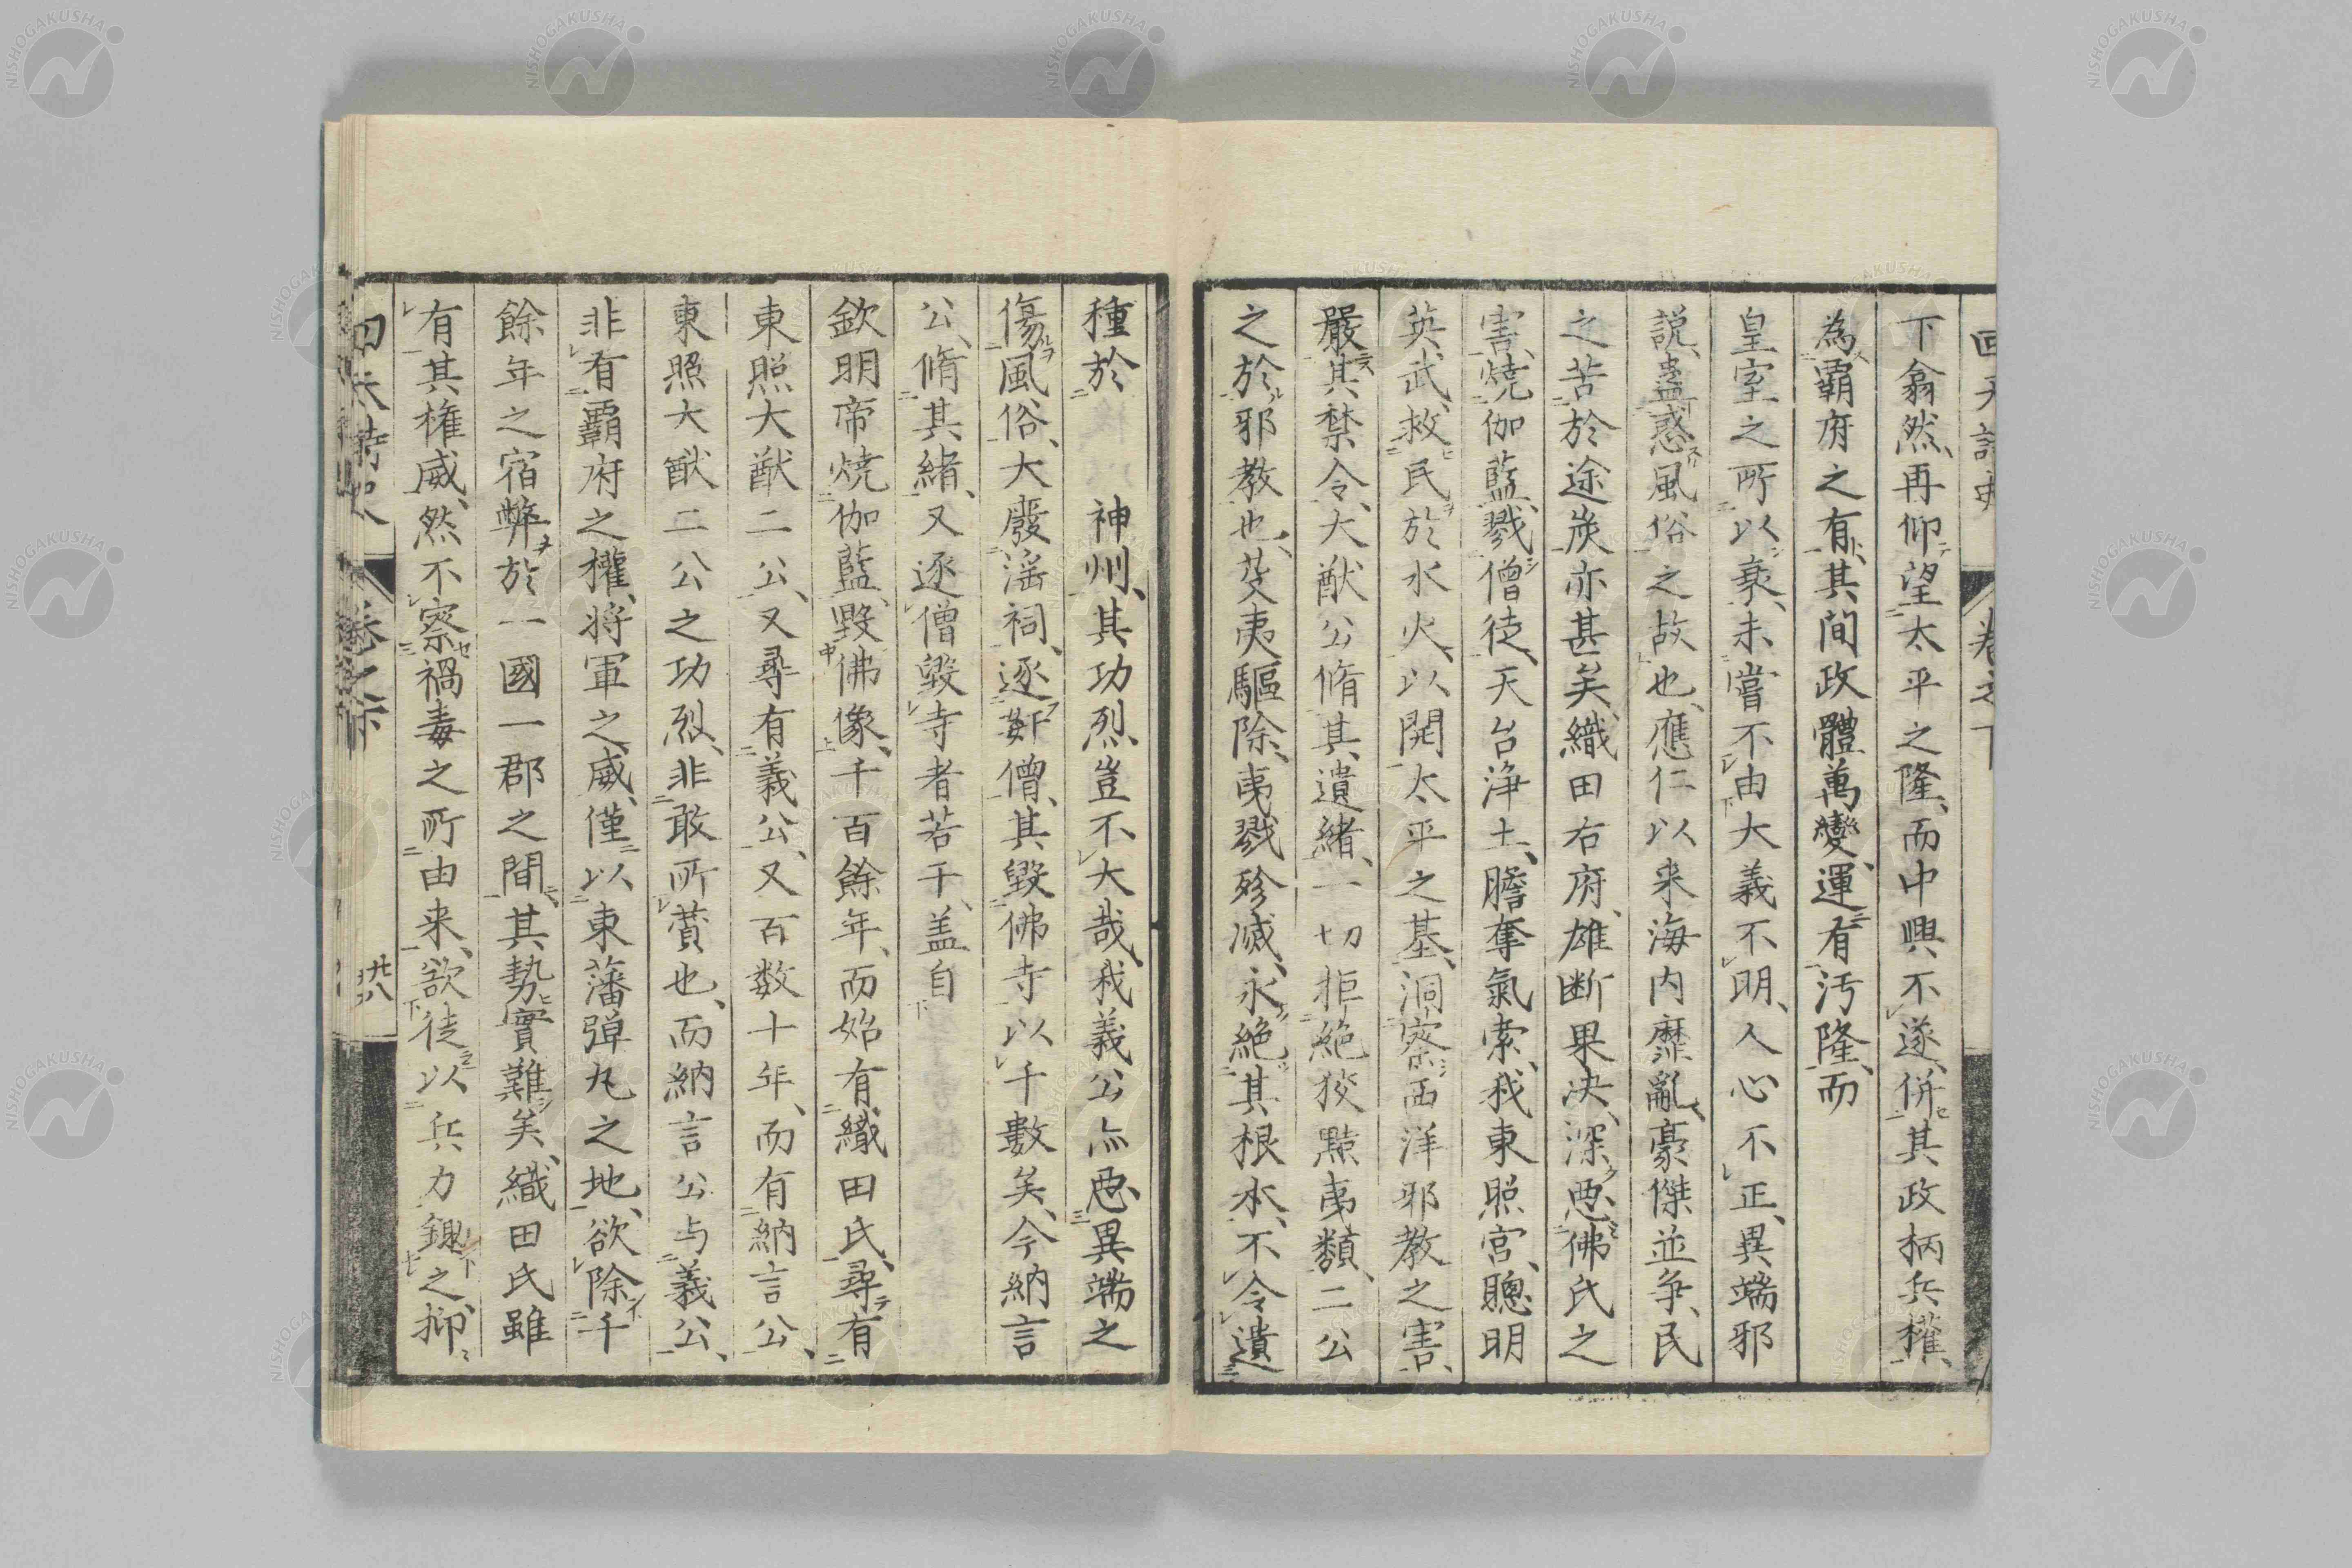 下翕然、再仰望太平之隆、而中興不遂、併其政柄兵權、
為霸府之有、其間政體萬變、運有汚隆、而
皇室之所以衰、未嘗不由大義不明、人心不正、異端邪
說、蠱惑風俗之故也、應仁以来海内糜亂、豪傑並争、民
之苦於途炭亦甚矣、織田右府、雄断果决、深惡佛氏之
害、焼伽藍、戮僧徒、天台浄土、膽奪氣索、我東照宮、聰明
英武、救民於水火、以開太平之基、洞察西洋邪教之害、
嚴其禁令、大猷公脩其遺緒、一切拒絶狡黠夷類、二公
之於邪教也、芟夷驅除、夷戮殄滅、永絶其根本、不令遺
種於 神州、其功烈豈不大哉、我義公亦惡異端之
傷風俗、大廢滛祠、逐姧僧、其毀佛寺以千數矣、今納言
公、脩其緒、又逐僧毀寺者若干、盖自
欽明帝焼伽藍、毀佛像、千百餘年、而始有織田氏、尋有
東照大猷二公、又尋有義公、又百数十年、而有納言公、
東照大猷二公之功烈、非敢所賛也、而納言公与義公、
非有霸府之權、将軍之威、僅以東藩弾丸之地、欲除千
餘年之宿弊於一國一郡之間、其勢實難矣、織田氏雖
有其権威、然不察禍毒之所由来、欲徒以兵力鋤之、抑
回天詩史 卷之下 廿八
回天詩史 卷之下
NISHOGAKUSHA